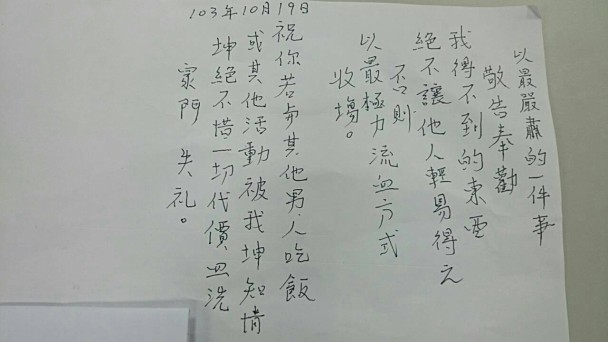 以最嚴肅的一件事
敬告奉勸
我得不到的東西
絕不讓他人輕易得之
否則
以最極力流血方式
收場。
祝你若与其他男人吃飯
或其他活動被我坤知情
坤絕不惜一切代價血洗
家門 失礼。
103年10月19日